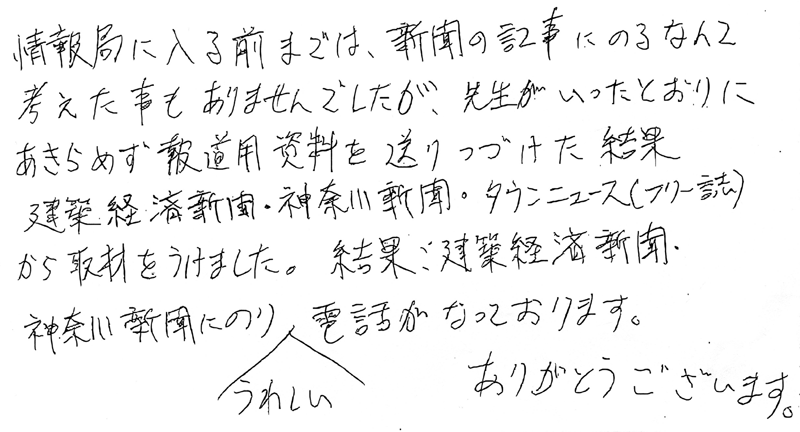 情報局に入る前までは、新聞の記事にのるなんて
考えた事もありませんでしたが、先生がいったとおりに
あきらめず報道用資料を送りつづけた結果
建築経済新聞・神奈川新聞・タウンニュース(フリー誌)
から取材をうけました。結果:建築経済新聞・
神奈川新聞にのり 電話がなっております。
うれしい
ありがとうございます。